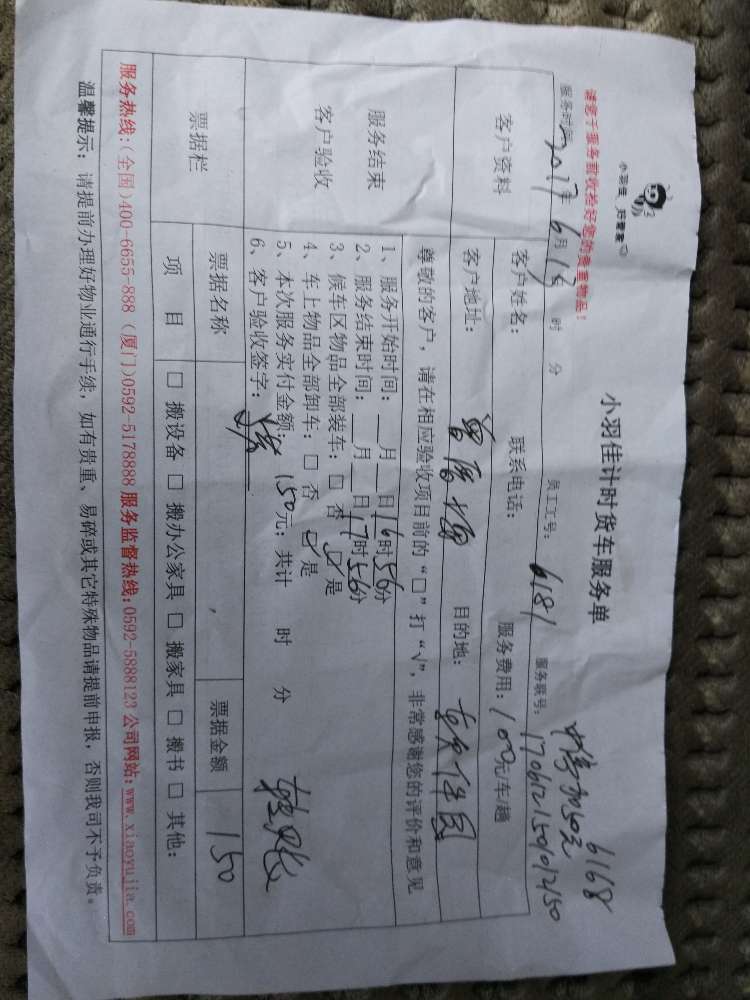 小羽佳 好管家
请您于服务前收检好您的贵重物品！
小羽佳计时货车服务单
6168
中停加50元
服务时间: 2017年 6月 19 时 分 员工工号: 6181 服务联号: 170612150101250
客户资料
客户姓名: 联系电话: 服务费用: 100元/车/趟
客户地址: 目的地:
尊敬的客户，请在相应验收项目前的“□”打“√”，非常感谢您的评价和意见
服务结束
客户验收
1、服务开始时间: __月__日16时56分
2、服务结束时间: __月__日17时56分
3、候车区物品全部装车: □ 否 ☑ 是
4、车上物品全部卸车: □ 否 ☑ 是
5、本次服务实付金额: 150元; 共计 时 分
6、客户验收签字:
挂账
票据栏
票据名称 票据金额 150
项 目 □ 搬设备 □ 搬办公家具 □ 搬家具 □ 搬书 □ 其他:
服务热线:(全国)400-6655-888 (厦门)0592-5178888 服务监督热线:0592-5888123 公司网站:www.xiaoyujia.com
温馨提示: 请提前办理好物业通行手续，如有贵重、易碎或其它特殊物品请提前申报，否则我司不予负责。